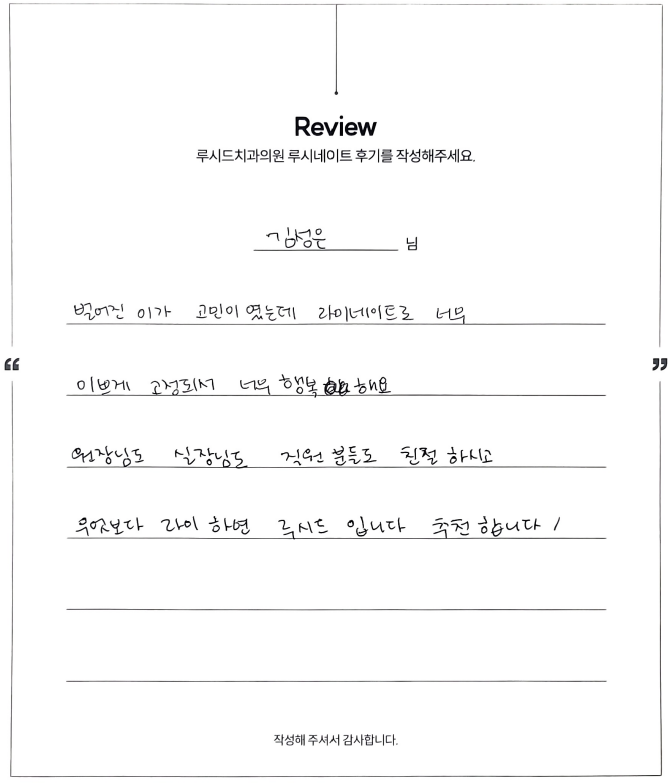 Review
루시드치과의원 루시네이트 후기를 작성해주세요.
김성은 님
벌어진 이가 고민이 였는데 라미네이트로 너무
“ ”
이쁘게 고정되서 너무 행복 해요
원장님도 실장님도 직원 분들도 친절 하시고
무엇보다 라미 하면 루시드 입니다 추천 합니다 !
작성해 주셔서 감사합니다.